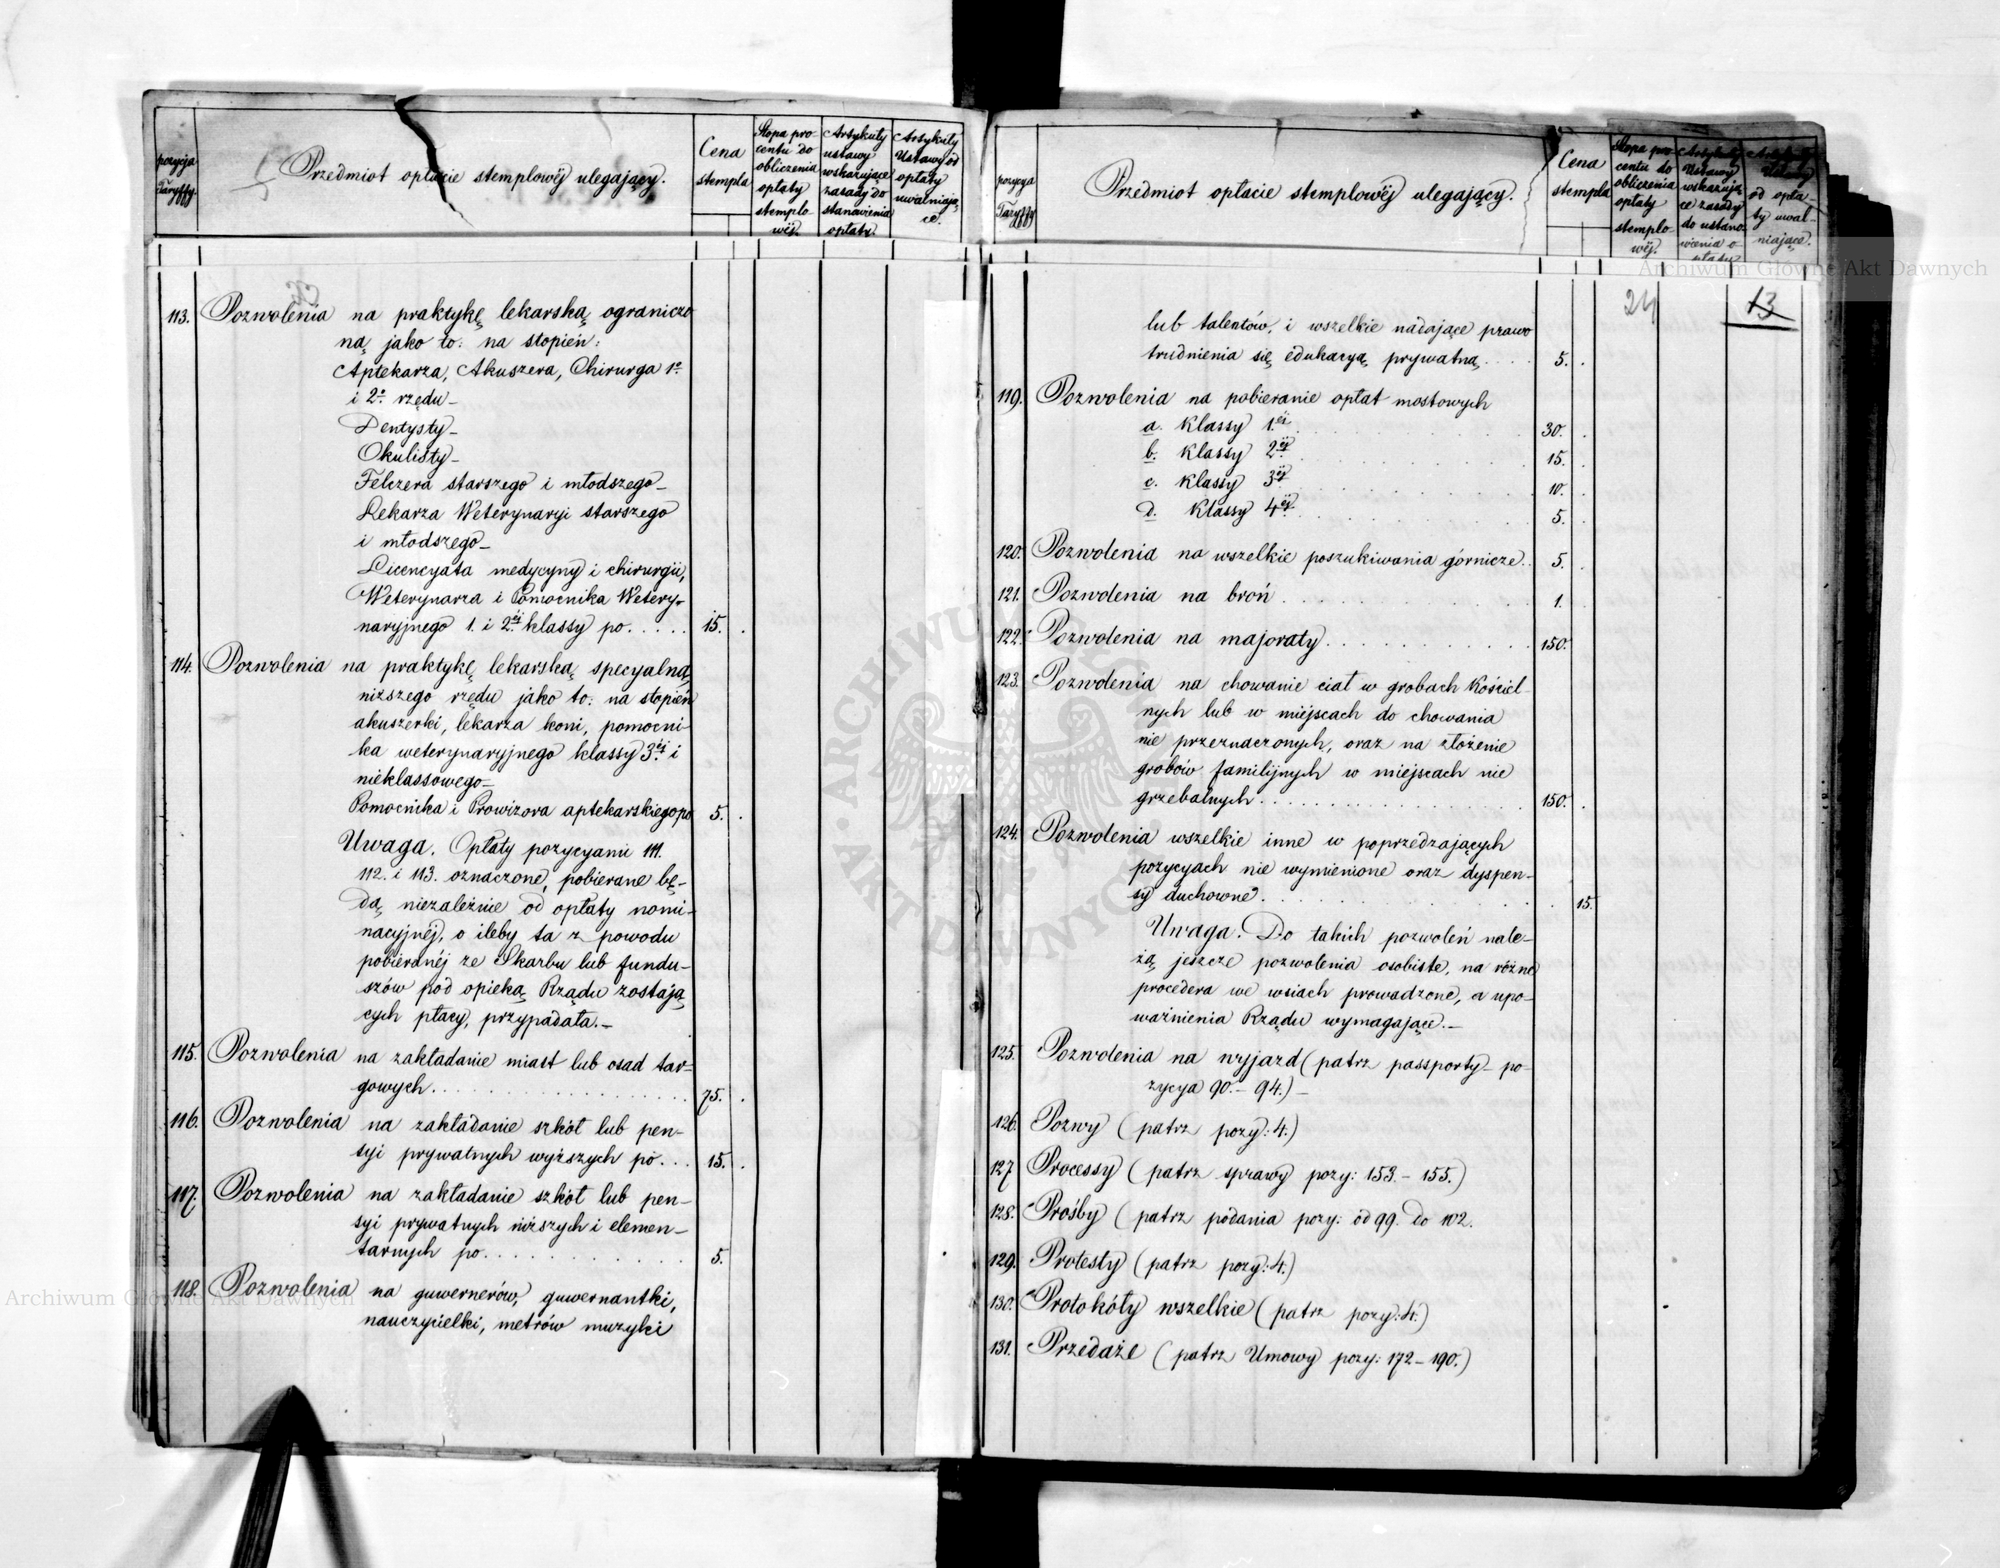 pozycja Taryffy
Przedmiot opłacie stemplowéj ulegający.
Cena stempla
Stopa procentu do obliczenia opłaty stemplowéj.
Artykuły ustawy wskazujące zasady do stanowienia opłaty.
Artykuły Ustawy od opłaty uwalniające.
113. Pozwolenia na praktykę lekarską ograniczo
ną jako to: na stopień:
Aptekarza, Akuszera, Chirurga 1º
i 2º rzędu_
Dentysty_
Okulisty_
Felczera starszego i młodszego_
Lekarza Weterynaryi starszego
i młodszego_
Licencyata medycyny i chirurgii,
Weterynarza i Pomocnika Wetery-
naryjnego 1. i 2éj klassy po..... 15.
114. Pozwolenia na praktykę lekarską specyalną,
niższego rzędu jako to: na stopień
akuszerki, lekarza koni, pomocni-
ka weterynaryjnego klassy 3éj i
nieklassowego_
Pomocnika i Prowizora aptekarskiego po 5.
Uwaga. Opłaty pozycyami 111.
112. i 113. oznaczone, pobierane bę-
dą niezależnie od opłaty nomi-
nacyjnéj, o ileby ta z powodu
pobieranéj ze Skarbu lub fundu-
szów pod opieką Rządu zostają
cych płacy, przypadała._
115. Pozwolenia na zakładanie miast lub osad tar-
gowych. . . . . 75.
116. Pozwolenia na zakładanie szkół lub pen-
syi prywatnych wyższych po... 15.
117. Pozwolenia na zakładanie szkół lub pen-
syi prywatnych niższych i elemen-
tarnych po. . . . . 5.
118. Pozwolenia na guwernerów, guwernantki,
nauczycielki, metrów muzyki
pozycya Taryffy
Przedmiot opłacie stemplowéj ulegający.
Cena stempla
Stopa procentu do obliczenia opłaty stemplowéj.
Artykuły Ustawy wskazujące zasady do ustanowienia opłaty
od opłaty uwalniające.
24 13
lub talentów, i wszelkie nadające prawo
trudnienia się edukacyą prywatną. . . . 5.
119. Pozwolenia na pobieranie opłat mostowych
a. klassy 1éj . . . . 30.
b. klassy 2éj . . . . 15.
c. klassy 3éj . . . . 10.
d. klassy 4éj . . . . 5.
120. Pozwolenia na wszelkie poszukiwania górnicze.. 5.
121. Pozwolenia na broń . . . . 1.
122. Pozwolenia na majoraty . . . . 150.
123. Pozwolenia na chowanie ciał w grobach Kościel-
nych lub w miejscach do chowania
nie przeznaczonych, oraz na złożenie
grobów familijnych w miejscach nie
grzebalnych. . . . . 150.
124. Pozwolenia wszelkie inne w poprzedzających
pozycyach nie wymienione oraz dyspen-
sy duchowne. . . . . 15.
Uwaga. Do takich pozwoleń nale-
żą jeszcze pozwolenia osobiste, na różne
procedera we wsiach prowadzone, a upo-
ważnienia Rządu wymagające._
125. Pozwolenia na wyjazd (patrz passporty_ po-
zycya 90.- 94.)_
126. Pozwy (patrz pozy: 4.)
127 Processy (patrz sprawy pozy: 153.- 155.)
128. Prośby (patrz podania pozy: od 99. do 102.
129. Protesty (patrz pozy: 4.)
130. Protokóły wszelkie (patrz pozy: 4.)
131. Przedaże (patrz Umowy pozy: 172 - 190.)
Archiwum Główne Akt Dawnych
Archiwum Główne Akt Dawnych
ARCHIWUM GŁÓWNE AKT DAWNYCH